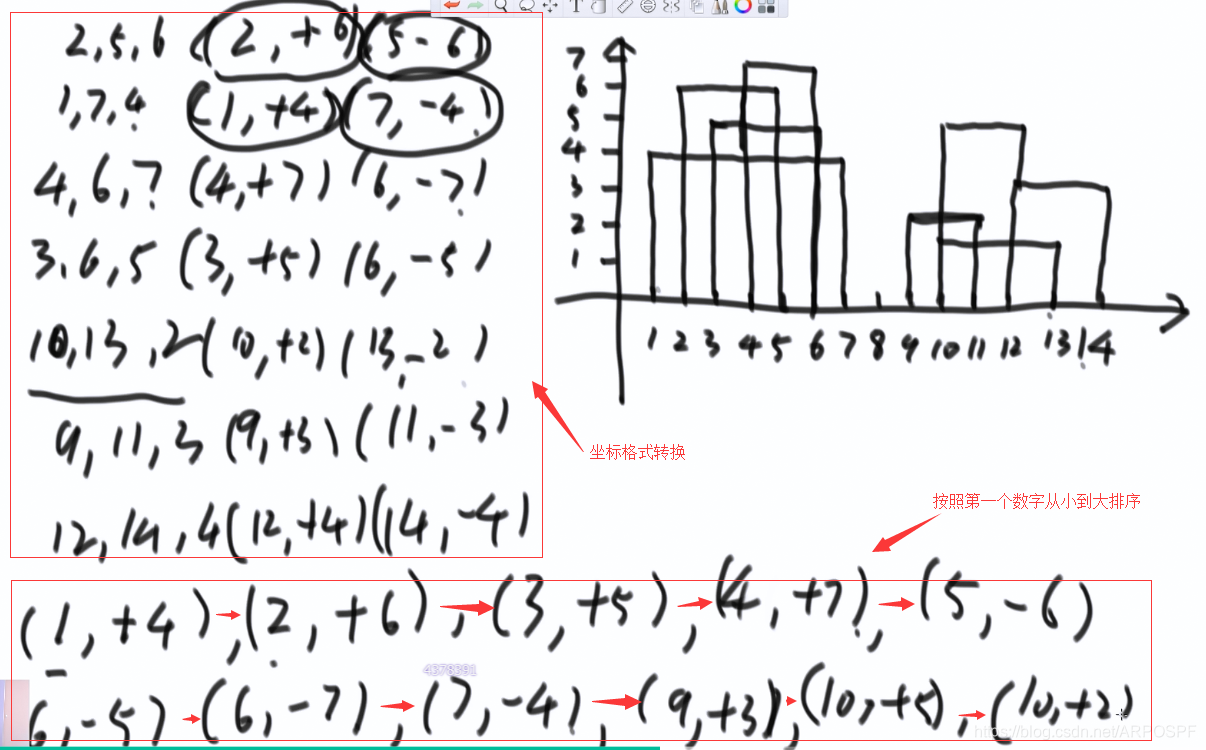 2,5,6 (2,+6) (5-6)
1,7,4 (1,+4) (7,-4)
4,6,7 (4,+7) (6,-7)
3,6,5 (3,+5) (6,-5)
10,13,2 (10,+2) (13,-2)
9,11,3 (9,+3) (11,-3)
12,14,4 (12,+4) (14,-4)
7
6
5
4
3
2
1
1 2 3 4 5 6 7 8 9 10 11 12 13 14
坐标格式转换
按照第一个数字从小到大排序
(1,+4),(2,+6),(3,+5),(4,+7),(5,-6)
6,-5),(6,-7),(7,-4),(9,+3),(10,+5),(10,+2)
4378391
https://blog.csdn.net/ARPOSPF